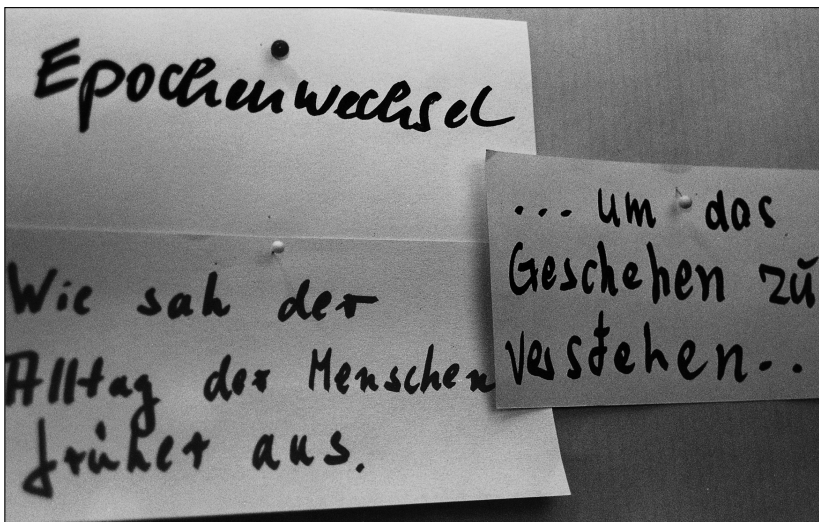 Epochenwechsel
Wie sah der
Alltag der Menschen
früher aus.
... um das
Geschehen zu
verstehen..